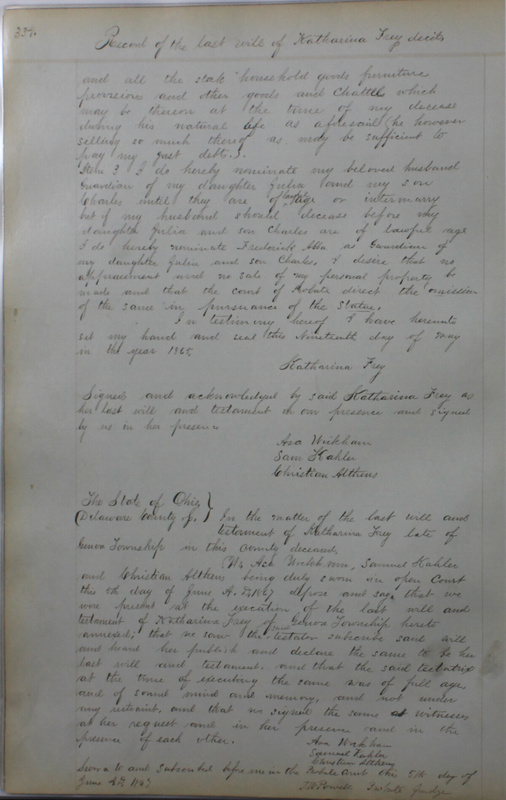 334.
Record of the last will of Katharina Frey decd
and all the stock household goods furniture
provisions and other goods and Chattle which
may be thereon at the time of my decease
during his natural life as aforesaid he however
selling so much thereof as may be sufficient to
pay my just debts.
Item 3 I do hereby nominate my beloved husband
Guardian of my daughter Julia and my son
Charles until they are of lawful age or intermarry
but if my husband should decease before my
daughter Julia and son Charles are of lawful age
I do hereby nominate Frederick as Guardian of
my daughter Julia and son Charles. I desire that no
appraisment and no sale of my personal property be
made and that the court of Probate direct the omission
of the same in pursuance of the Statue.
In testimony hereof I have hereunto
set my hand and seal this Nineteenth day of May
in the year
Katharina Frey
Signed and acknowledged by said Katharina Frey as
her last will and testament in our presence and signed
by us in her presence
Asa Wickham
Sam Kahler
Christian Altheus
The State of Ohio
Delaware County Ss. } In the matter of the last will and
testament of Katharina Frey late of
Genoa Township in this County deceased
We Asa Wickham, Samuel Kahler
and Christian Altheus being duly sworn in open Court
this 5th day of June A.D. 1867 depose and say that we
were present at the execution of the last will and
testament of Katharina Frey of said Genoa Township hereto
annexed; that we saw the testator subscribe said will
and heard her publish and declare the same to be her
last will and testament. and that the said testatrix
at the time of executing the same was of full age,
and of sound mind and memory, and not under
any restraint, and that we signed the same as witnesses
at her request and in her presence and in the
presence of each other.
Asa Wickham
Samuel Kahler
Christian Altheus
Sworn to and subscribed before me in the Probate Court this 5th day of
June AD 1867
Powell Probate Judge